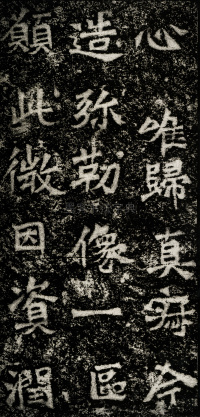 心唯歸真寂今
造弥勒像一區
願此微因資潤